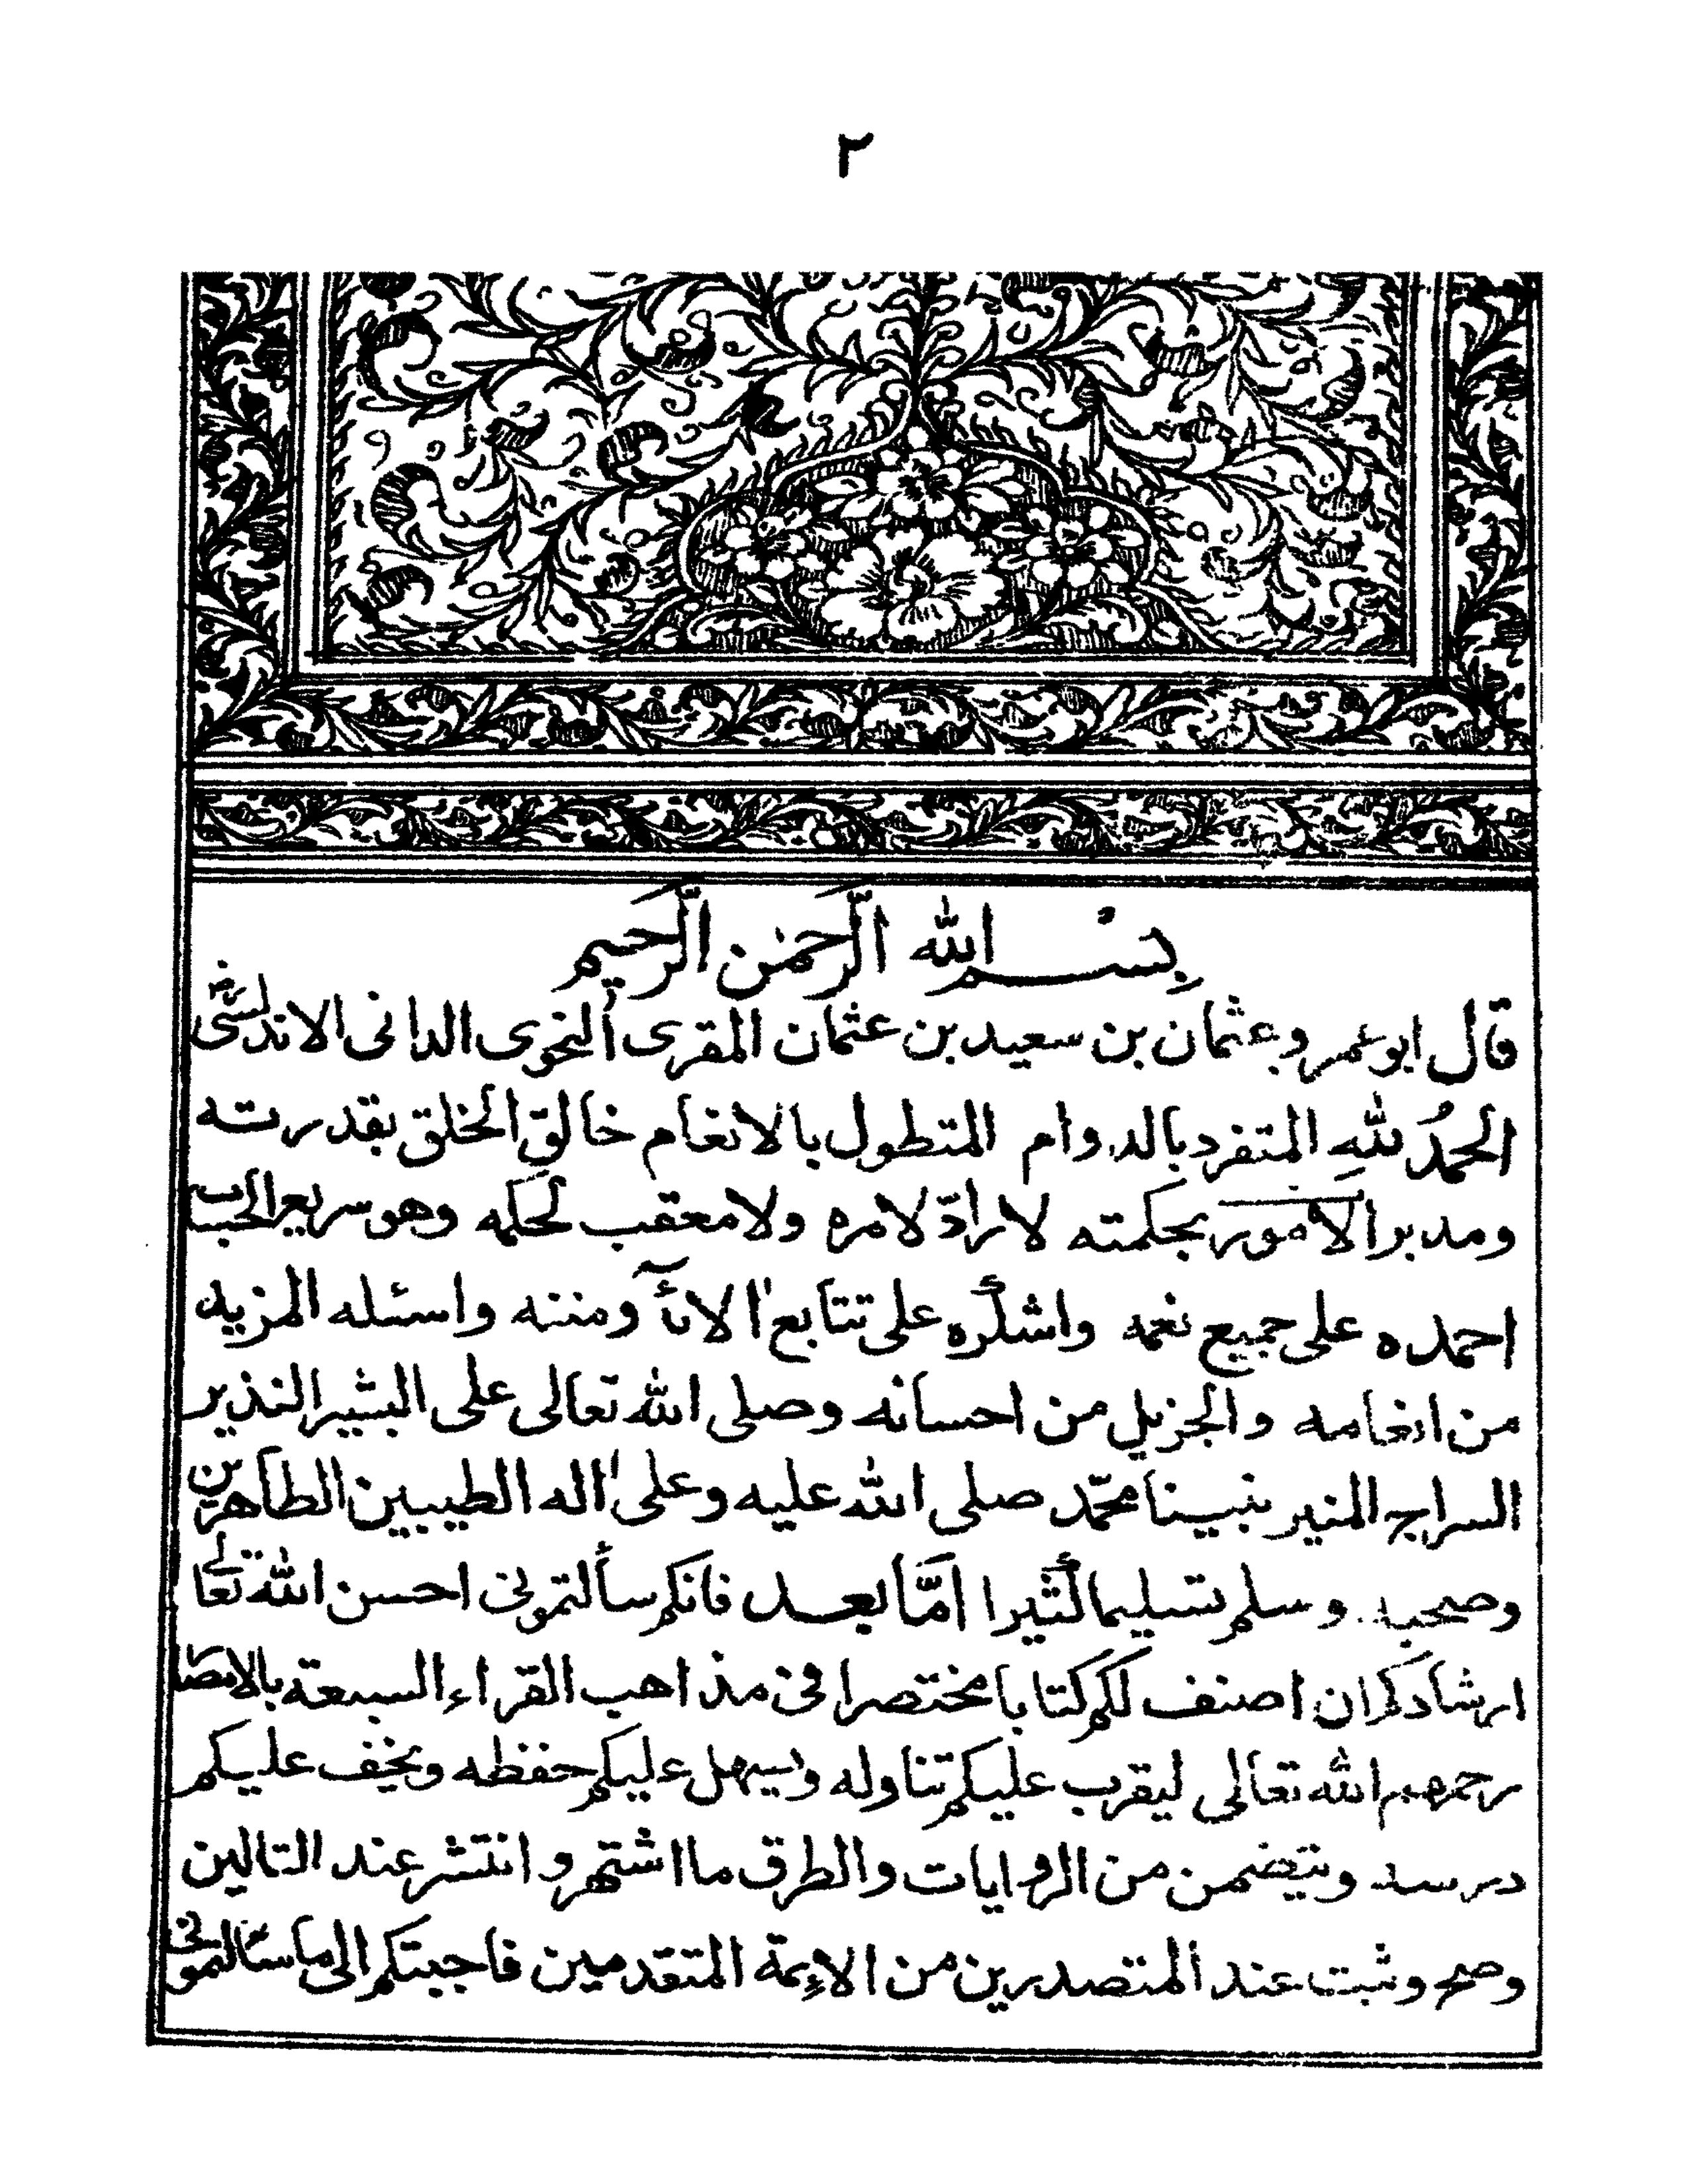 ٢
بسم الله الرحمن الرحيم
قال ابو عمرو عثمان بن سعيد بن عثمان المقرى النحوى الدانى الاندلسى رض
الحمد لله المتفرد بالدوام المتطول بالانعام خالق الخلق بقدرته
ومدبر الامور بحكمته لا رادّ لامره ولا معقب لحكمه وهو سريع الحساب
احمده على جميع نعمه واشكره على تتابع الائه ومننه واسئله المزيد
من انعامه والجزيل من احسانه وصلى الله تعالى على البشير النذير
السراج المنير نبينا محمّد صلى الله عليه وعلى اله الطيبين الطاهرين
وصحبه وسلم تسليما كثيرا امّا بعد فانكم سألتمونى احسن الله تعالى
ارشادكم ان اصنف لكم كتابا مختصرا فى مذاهب القراء السبعة بالامصار
رحمهم الله تعالى ليقرب عليكم تناوله ويسهل عليكم حفظه ويخف عليكم
درسه ويتضمن من الروايات والطرق ما اشتهر وانتشر عند التالين
وصح وثبت عند المتصدرين من الايمة المتقدمين فاجبتكم الى ما سئالتمونى